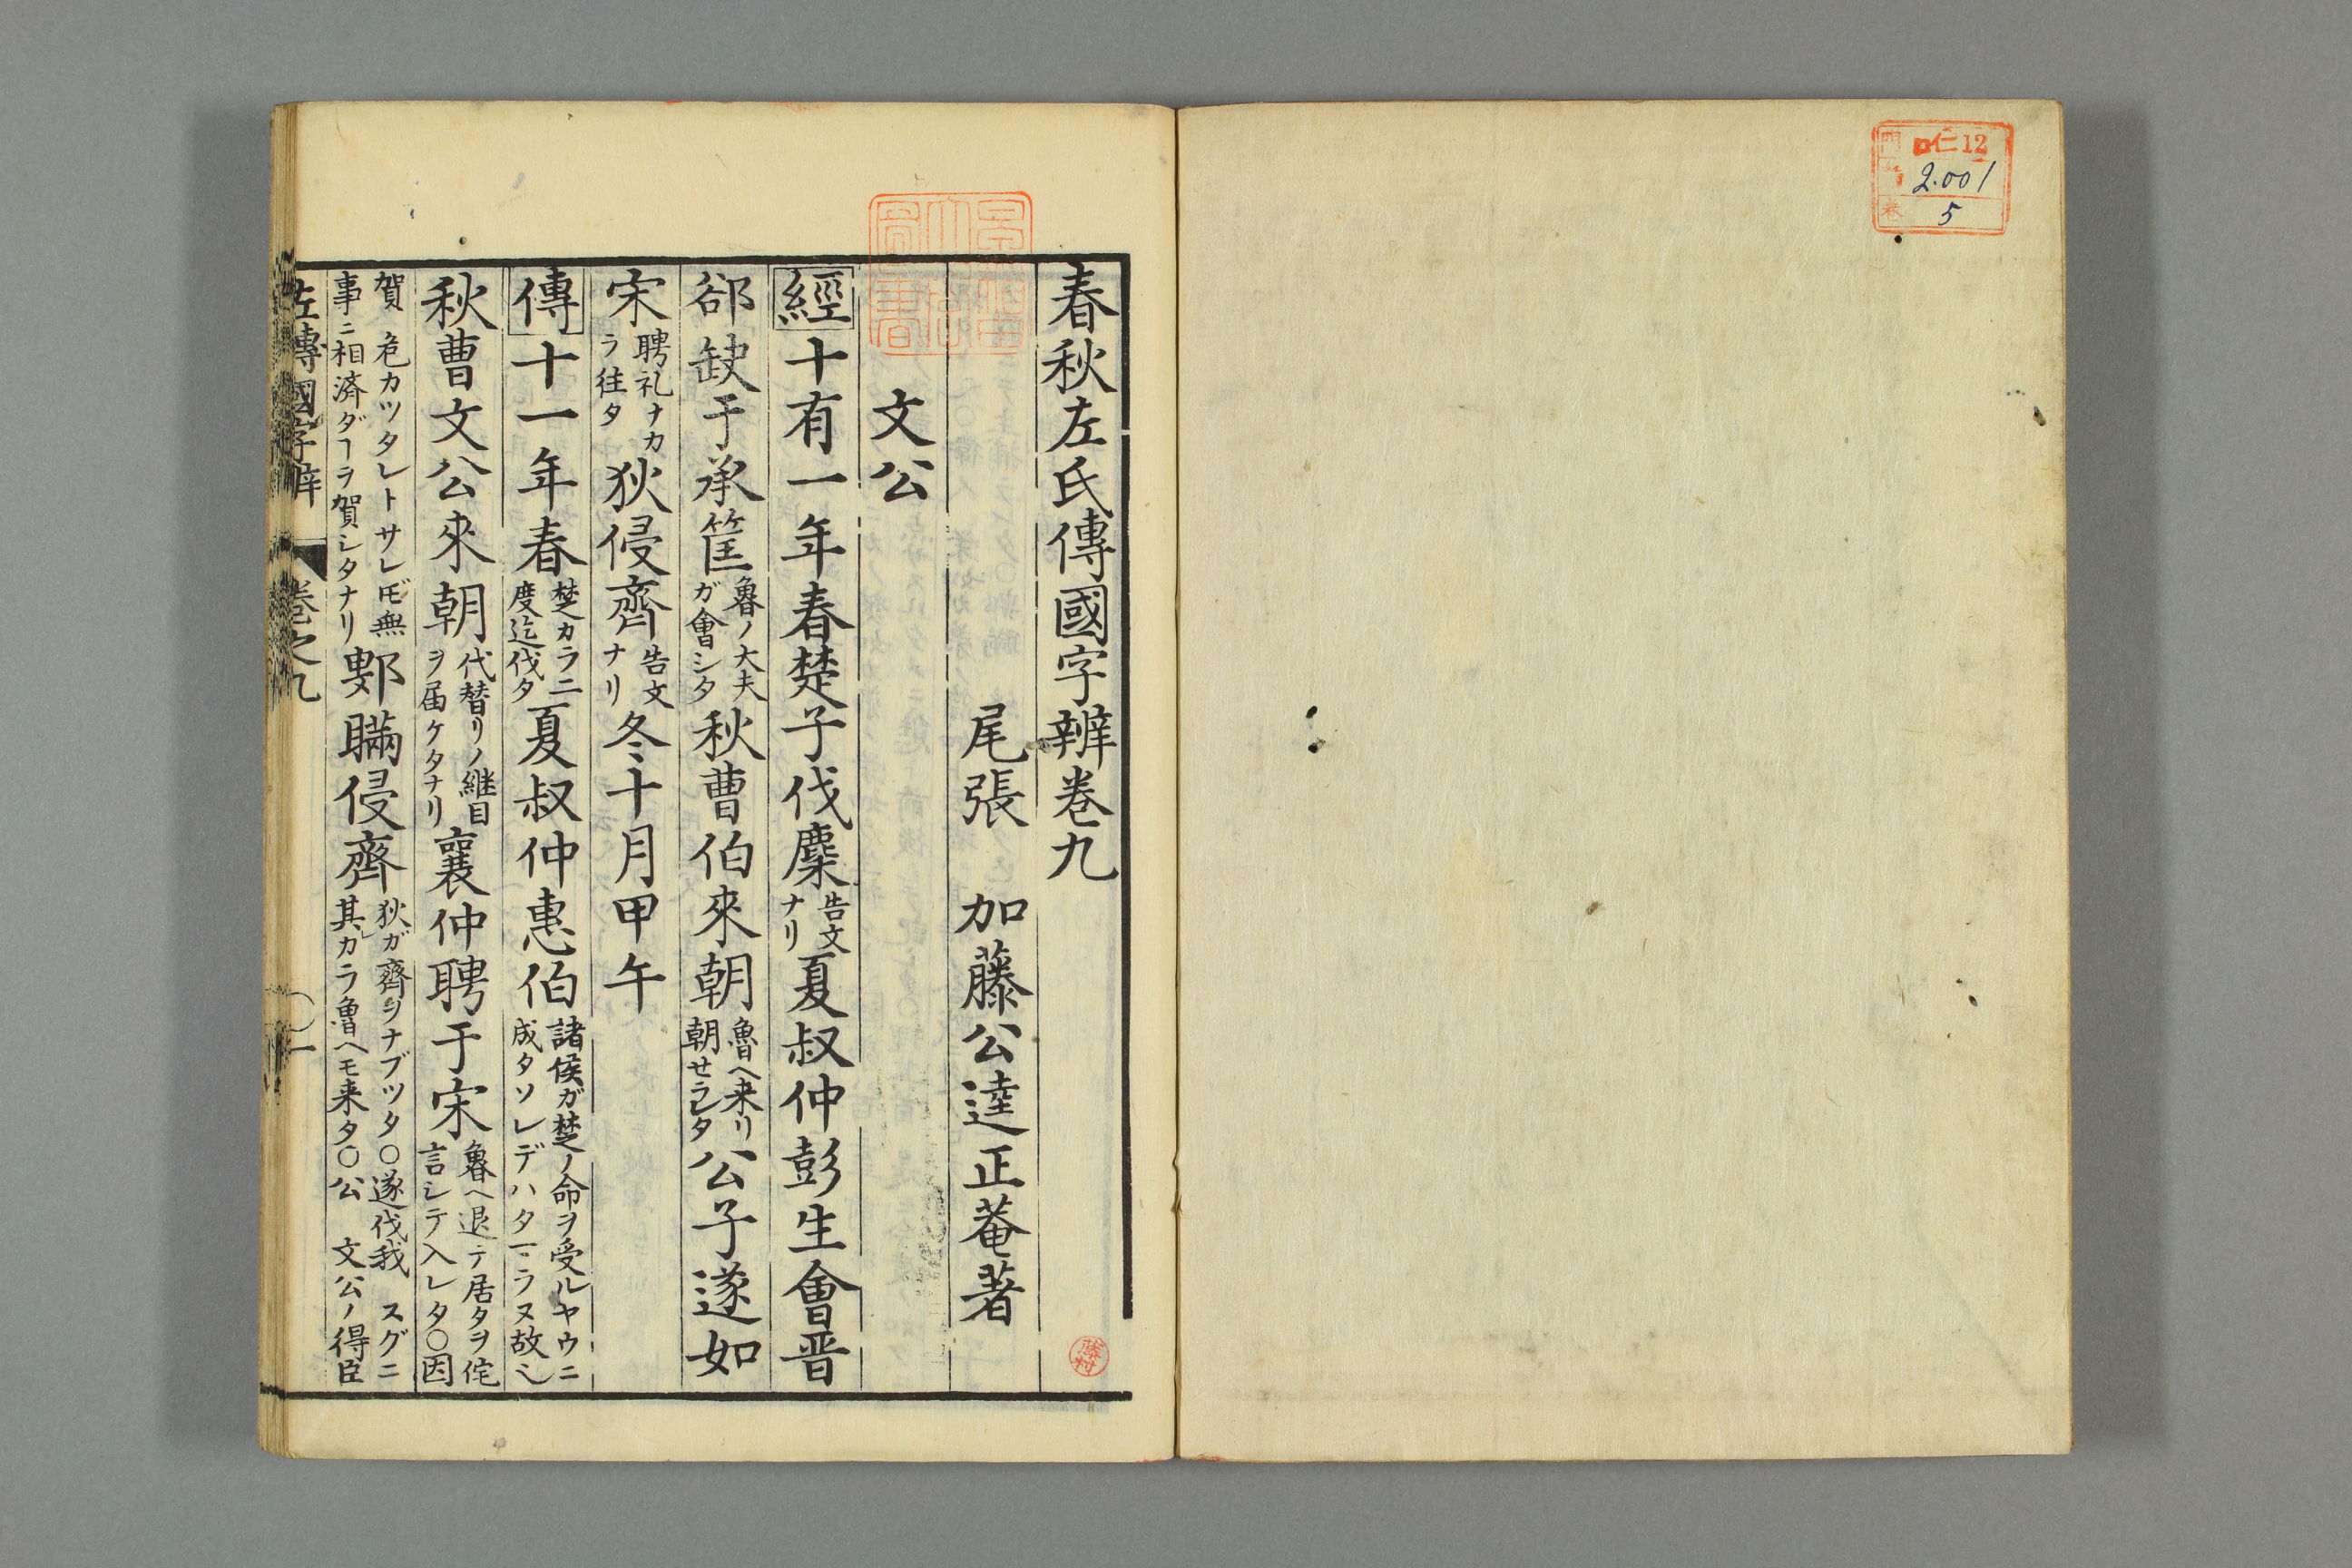 仁12
2.001
5
春秋左氏傳國字辨卷九
尾張 加藤公逵正菴著
文公
經十有一年春楚子伐麇告文ナリ夏叔仲彭生會晋
郤缺于承筐魯ノ大夫ガ會シタ秋曹伯來朝魯ヘ来リ朝セラレタ公子遂如
宋聘礼ナカラ往タ狄侵齊告文ナリ冬十月甲午
傳十一年春楚カラ二度迄伐タ夏叔仲惠伯諸侯ガ楚ノ命ヲ受ルヤウニ成タソレデハタマラヌ故ニ
秋曹文公來朝代替リノ継目ヲ届ケタナリ襄仲聘于宋魯ヘ退テ居タヲ侘言シテ入レタ○因
賀 危カツタレトサレ𪜈無事ニ相済ダヿヲ賀シタナリ鄋瞞侵齊狄ガ齊ヲナブツタ○遂伐我 スグニ其カラ魯ヘモ来タ○公 文公ノ得臣
左傳國字辨 卷之九 ○一